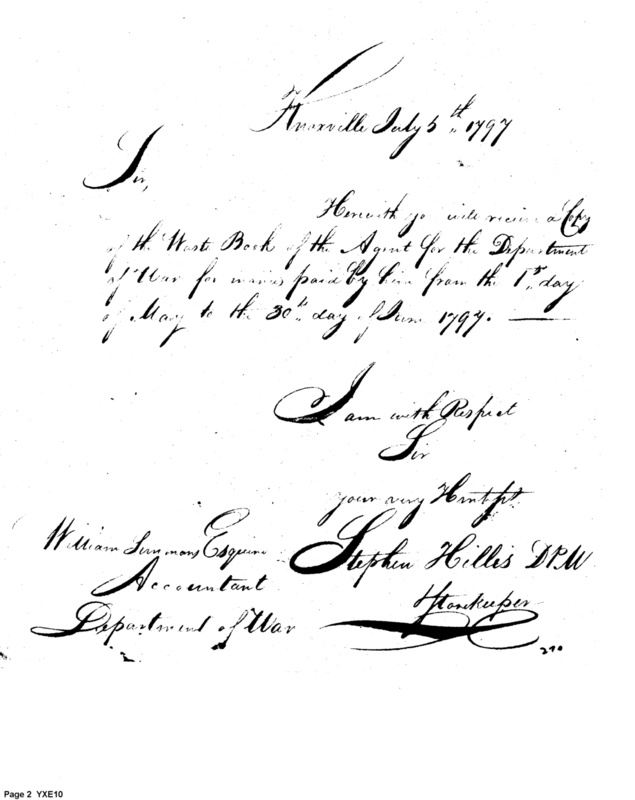 Knoxville July 5th 1797
Sir,
Herewith yo will receive a Copy
of the Waste Book of the Agent for the Department
of War for monies paid by him from the 1st day
of May to the 30th day of June 1797.
I am with Respect
Sir
your very Hm
William Simmons Esquire
Stephen Hillis DPM
Accountant
Storekeeper
Department of War
Page 2 YXE10